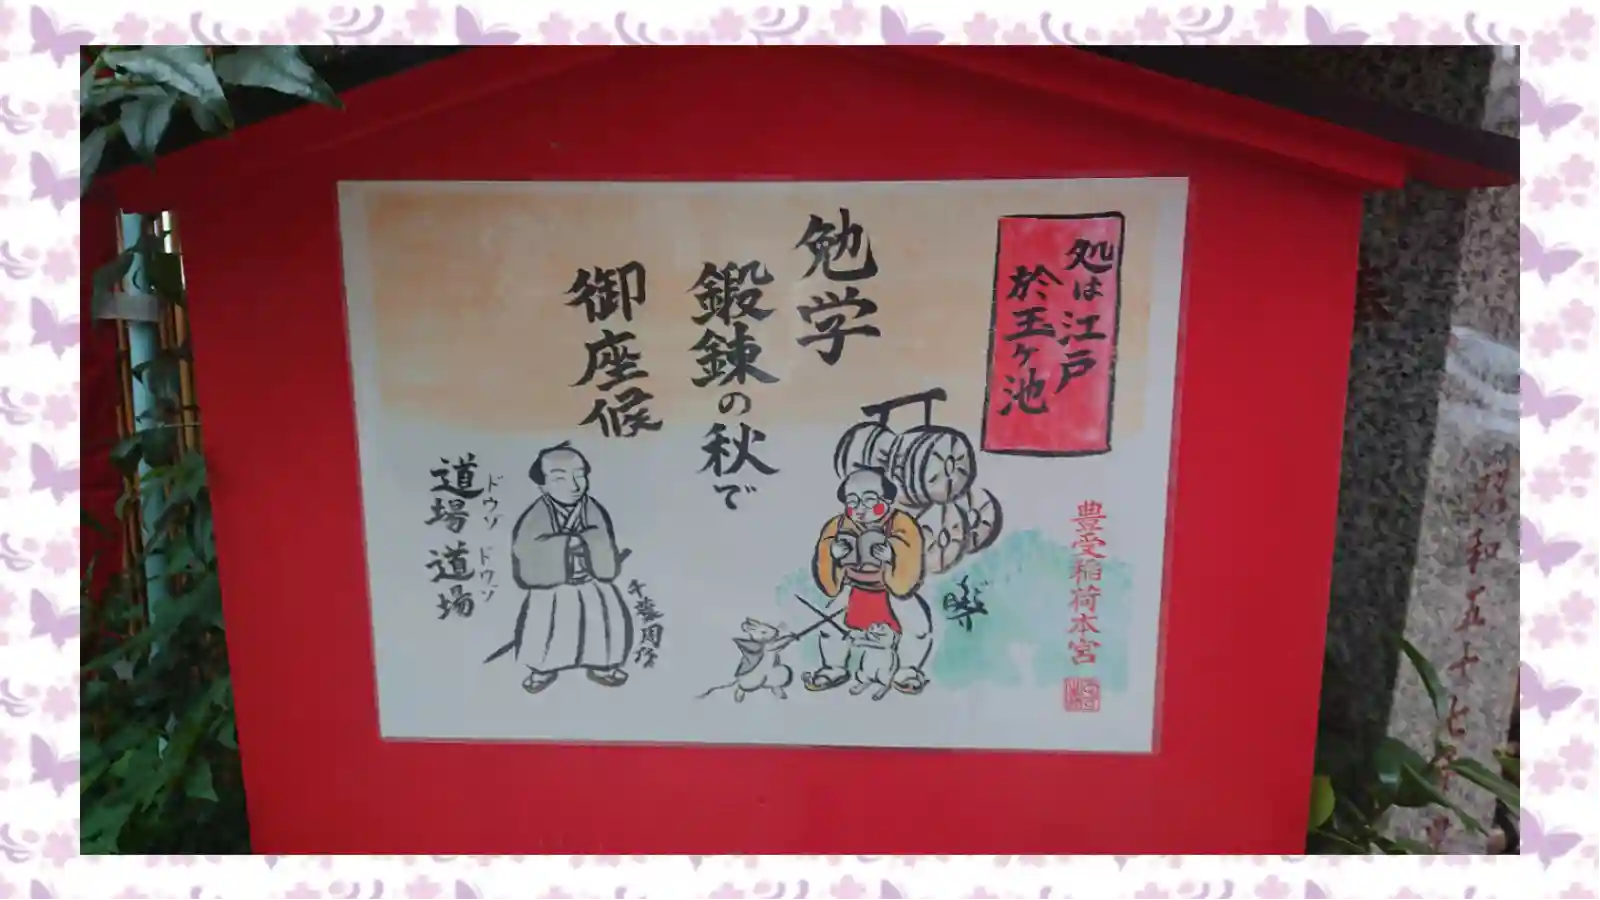 処は江戸
於玉ヶ池
勉学
鍛錬の秋で
御座候
豊受稲荷本宮
千葉周作
道場 道場
ドウゾ ドウゾ
昭和五十七年